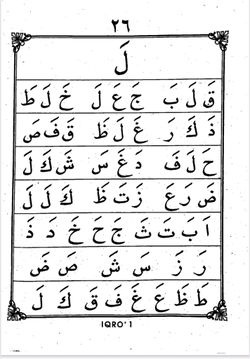 ٢٦
لَ
قَ لَ بَ جَ عَ لَ خَ لَ طَ
ذَ كَ رَ غَ لَ ظَ قَ فَ صَ
حَ لَ فَ دَ غَ سَ شَ كَ لَ
ضَ رَ عَ زَ تَ ظَ كَ لَ لَ
اَ بَ تَ ثَ جَ حَ خَ دَ ذَ
رَ زَ سَ شَ صَ ضَ
طَ ظَ عَ غَ فَ قَ كَ لَ
IQRO' 1